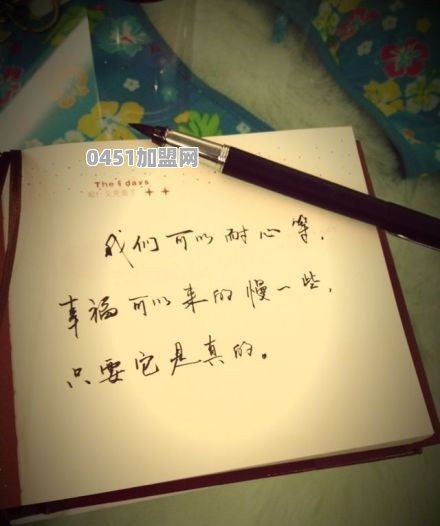 0451加盟网
The 6 days
我们可以耐心等，
幸福可以来的慢一些，
只要它是真的。